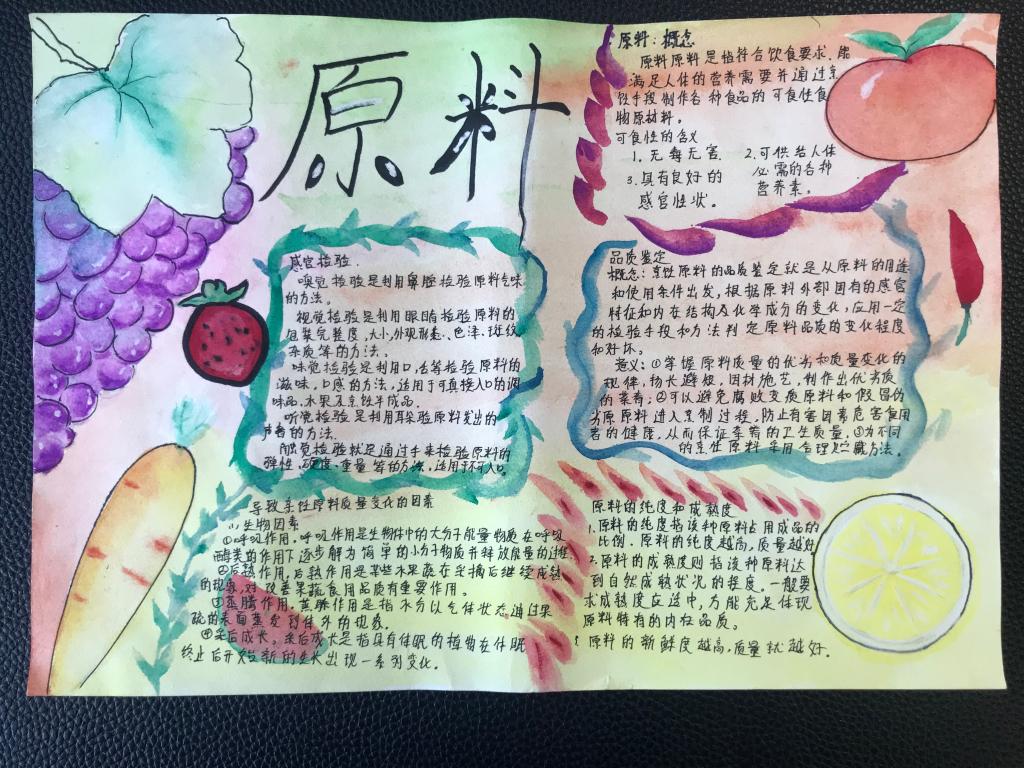 原料
原料:概念
原料原料是指符合饮食要求、能
满足人体的营养需要并通过烹
饪手段制作各种食品的可食性食
物原材料。
可食性的含义
1. 无毒无害
2. 可供给人体
必需的各种
营养素。
3. 具有良好的
感官性状。
感官检验.
嗅觉检验是利用鼻腔检验原料气味
的方法。
视觉检验是利用眼睛检验原料的
包装完整度,大小,外观形态、色泽、斑纹
杂质等的方法。
味觉检验是利用口,舌等检验原料的
滋味,口感的方法,适用于可直接入口的调
味品,水果及烹饪半成品。
听觉检验是利用耳朵验原料发出的
声音的方法.
触觉检验就是通过手来检验原料的
弹性,硬度,重量等的方法,适用于不可入口
品质鉴定
概念:烹饪原料的品质鉴定就是从原料的用途
和使用条件出发,根据原料外部固有的感官
特征和内在结构及化学成分的变化,应用一定
的检验手段和方法判定原料品质的变化程度
和好坏。
意义:①掌握原料质量的优劣和质量变化的
规律,扬长避短,因材施艺,制作出优质
的菜肴;②可以避免腐败变质原料和假冒伪
劣原原料进入烹制过程,防止有害因素危害食用
者的健康,从而保证菜肴的卫生质量,③为不同
的烹饪原料采用合理贮藏方法。
导致烹饪原料质量变化的因素
(1)生物因素
①呼吸作用,呼吸作用是生物体中的大分子能量物质在呼吸
酶类的作用下逐步解为简单的小分子物质并释放能量的过程
②后熟作用,后熟作用是某些水果蔬在采摘后继续成熟
的现象,对改善果蔬食用品质有重要作用。
③蒸腾作用,蒸腾作用是指水分以气体状态通过果
蔬的表面蒸发到体外的现象.
④采后成长,采后成长是指具有休眠的植物在休眠
终止后开始新的生长出现一系列变化。
原料的纯度和成熟度
1.原料的纯度指该种原料占用成品的
比例.原料的纯度越高,质量越好
2.原料的成熟度则指该种原料达
到自然成熟状况的程度。一般要
求成熟度应适中,方能充足体现
原料特有的内在品质。
原料的新鲜度越高,质量就越好.